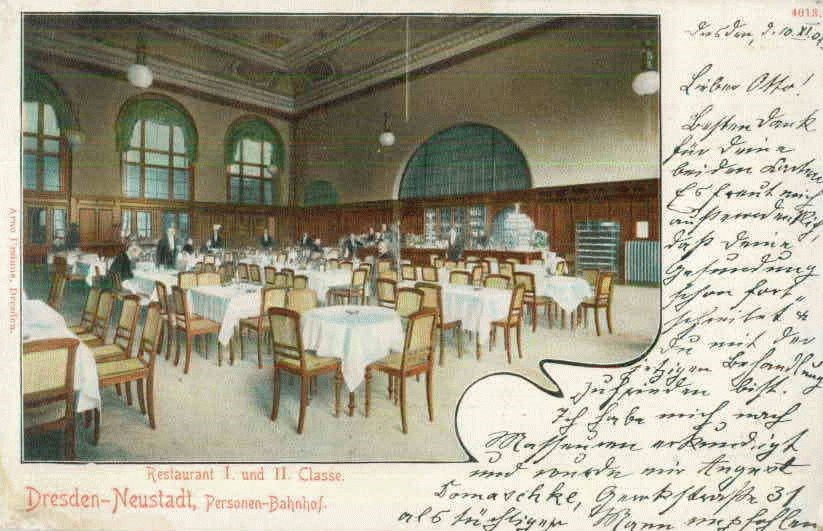 4018.
Dresden, d. 10. XI. 01
Lieber Otto!
Besten Dank
für Deine
beiden Karten
Es freut mich
außerordentlich,
daß Deine
Gesundung
schon fort-
schreitet &
Du mit der
jetzigen Behandlung
zufrieden bist.
Ich habe mich nach
Masseuren erkundigt
und wurde mir August
Domaschke, Gerokstraße 31
als tüchtiger Mann empfohlen
Restaurant I. und II. Classe.
Dresden-Neustadt, Personen-Bahnhof.
Dresden.